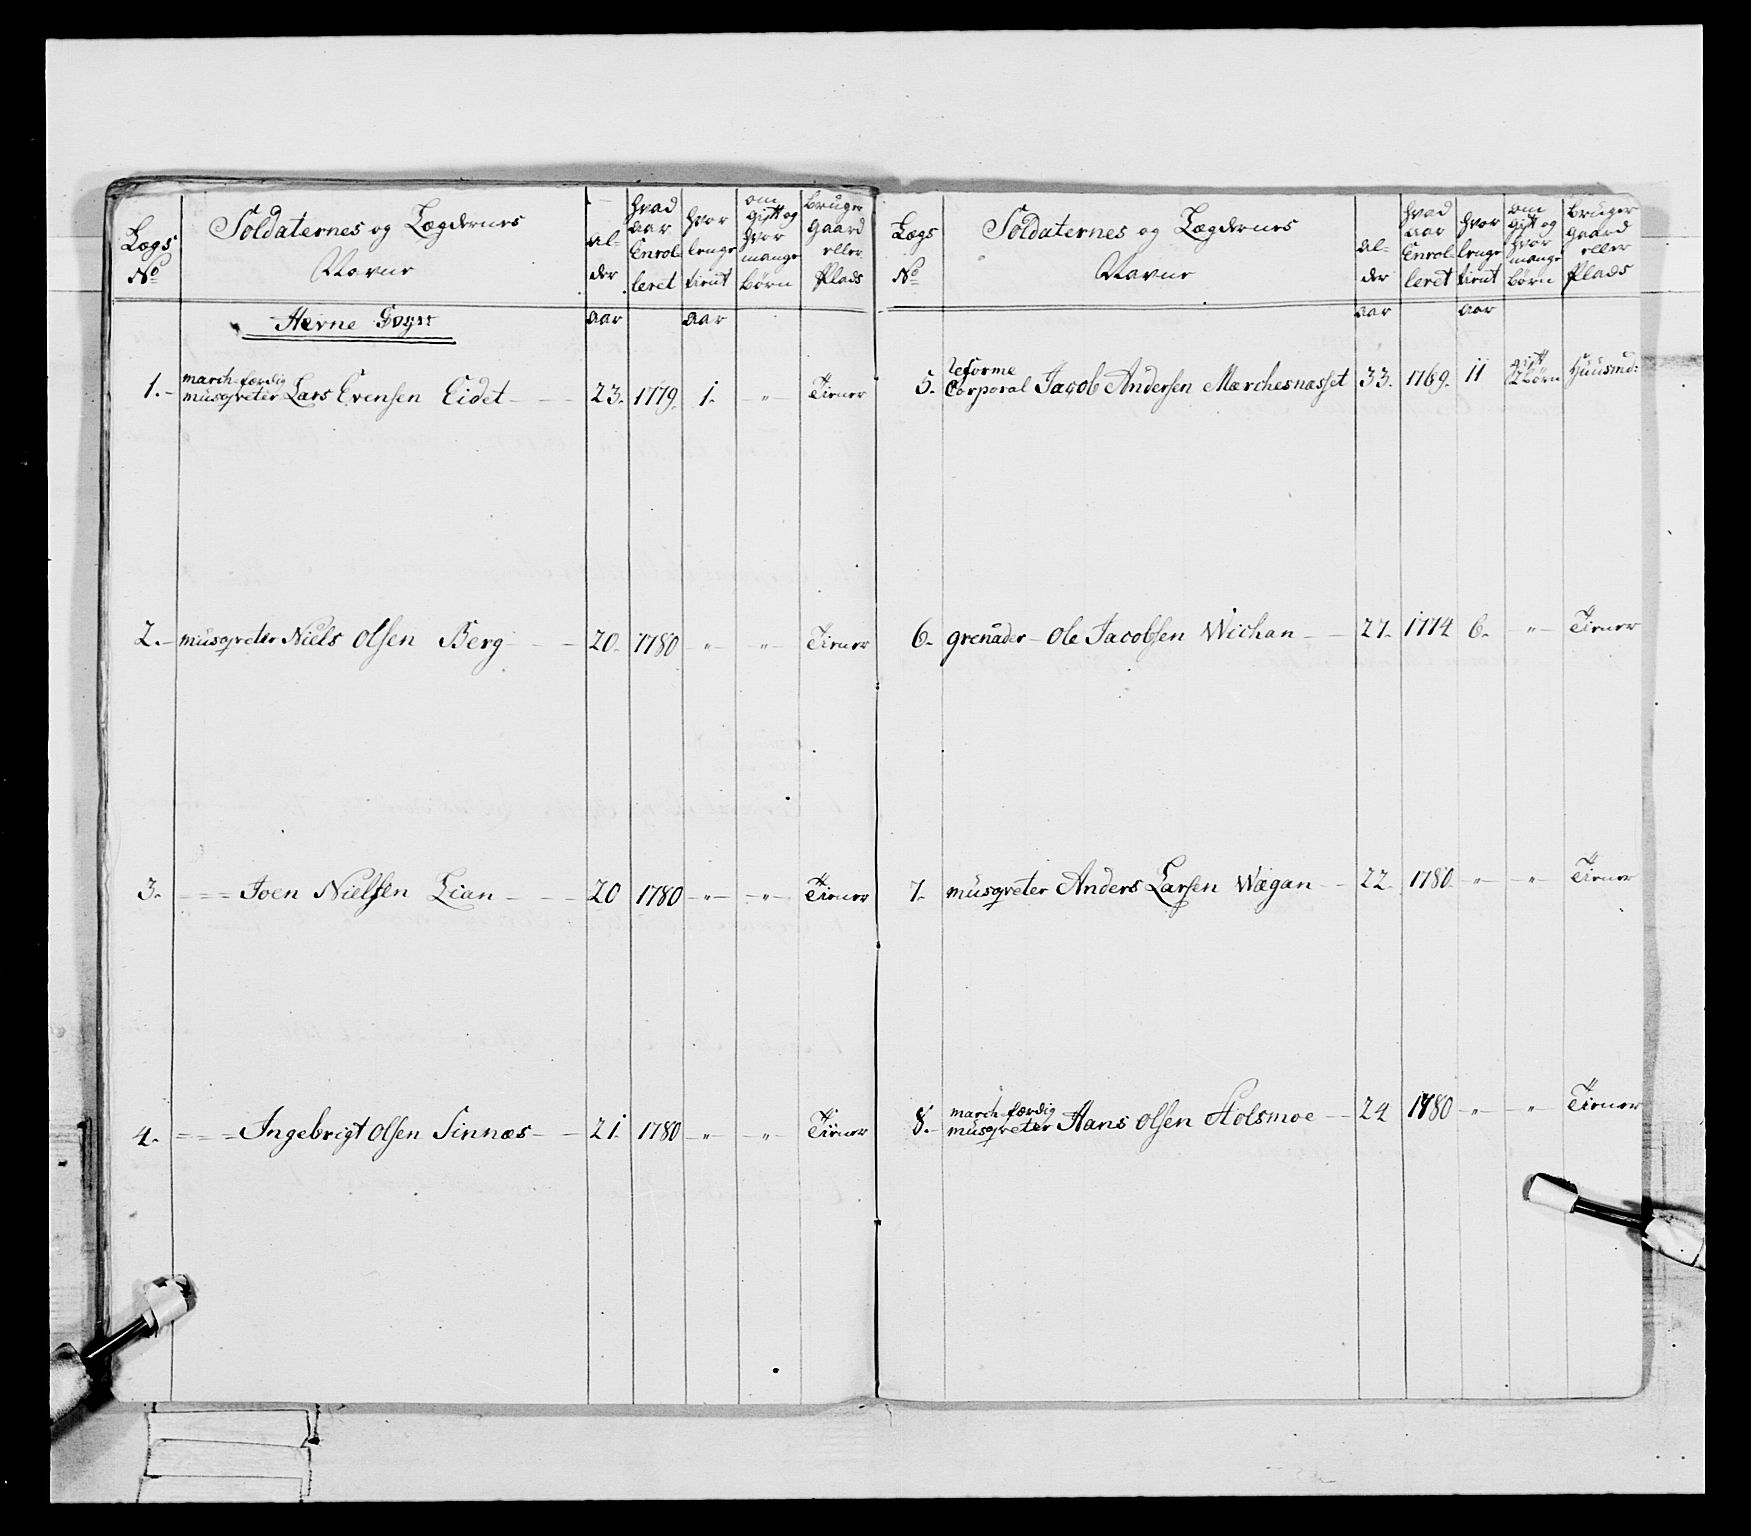 Lægs No
Soldaternes og Lægdernes Navne
al- der
hvad aar Enrol- leret
hvor lenge tient
om gift og hvor mange børn
bruger gaard eller Plads
Herne Sogn
aar aar
1. march færdig musqveter Lars Evensen Eidet 23. 1779. 1. " Tiener
2. musqveter Niels Olsen Berg 20. 1780 " " Tiener
3. Joen Nielsen Lian 20 1780 " " Tiener
4. Ingebrigt Olsen Sinnæs 21. 1780 " " Tiener
Lægs No
Soldaternes og Lægdernes Navne
al- der
hvad aar Enrol- leret
hvor lenge tient
om gift og hvor mange børn
bruger gaard eller Plads
aar aar
5. reforme Corporal Jacob Andersen Mærchesnæsset 33. 1769. 11 gift 2 børn Huusmd:
6. grenader Ole Jacobsen Wichan 27. 1774 6. " Tiener
7. musqveter Anders Larsen Wægan 22. 1780. " " Tiener
8. march færdig musqveter Hans Olsen Stolsmoe 24 1780 " " Tiener